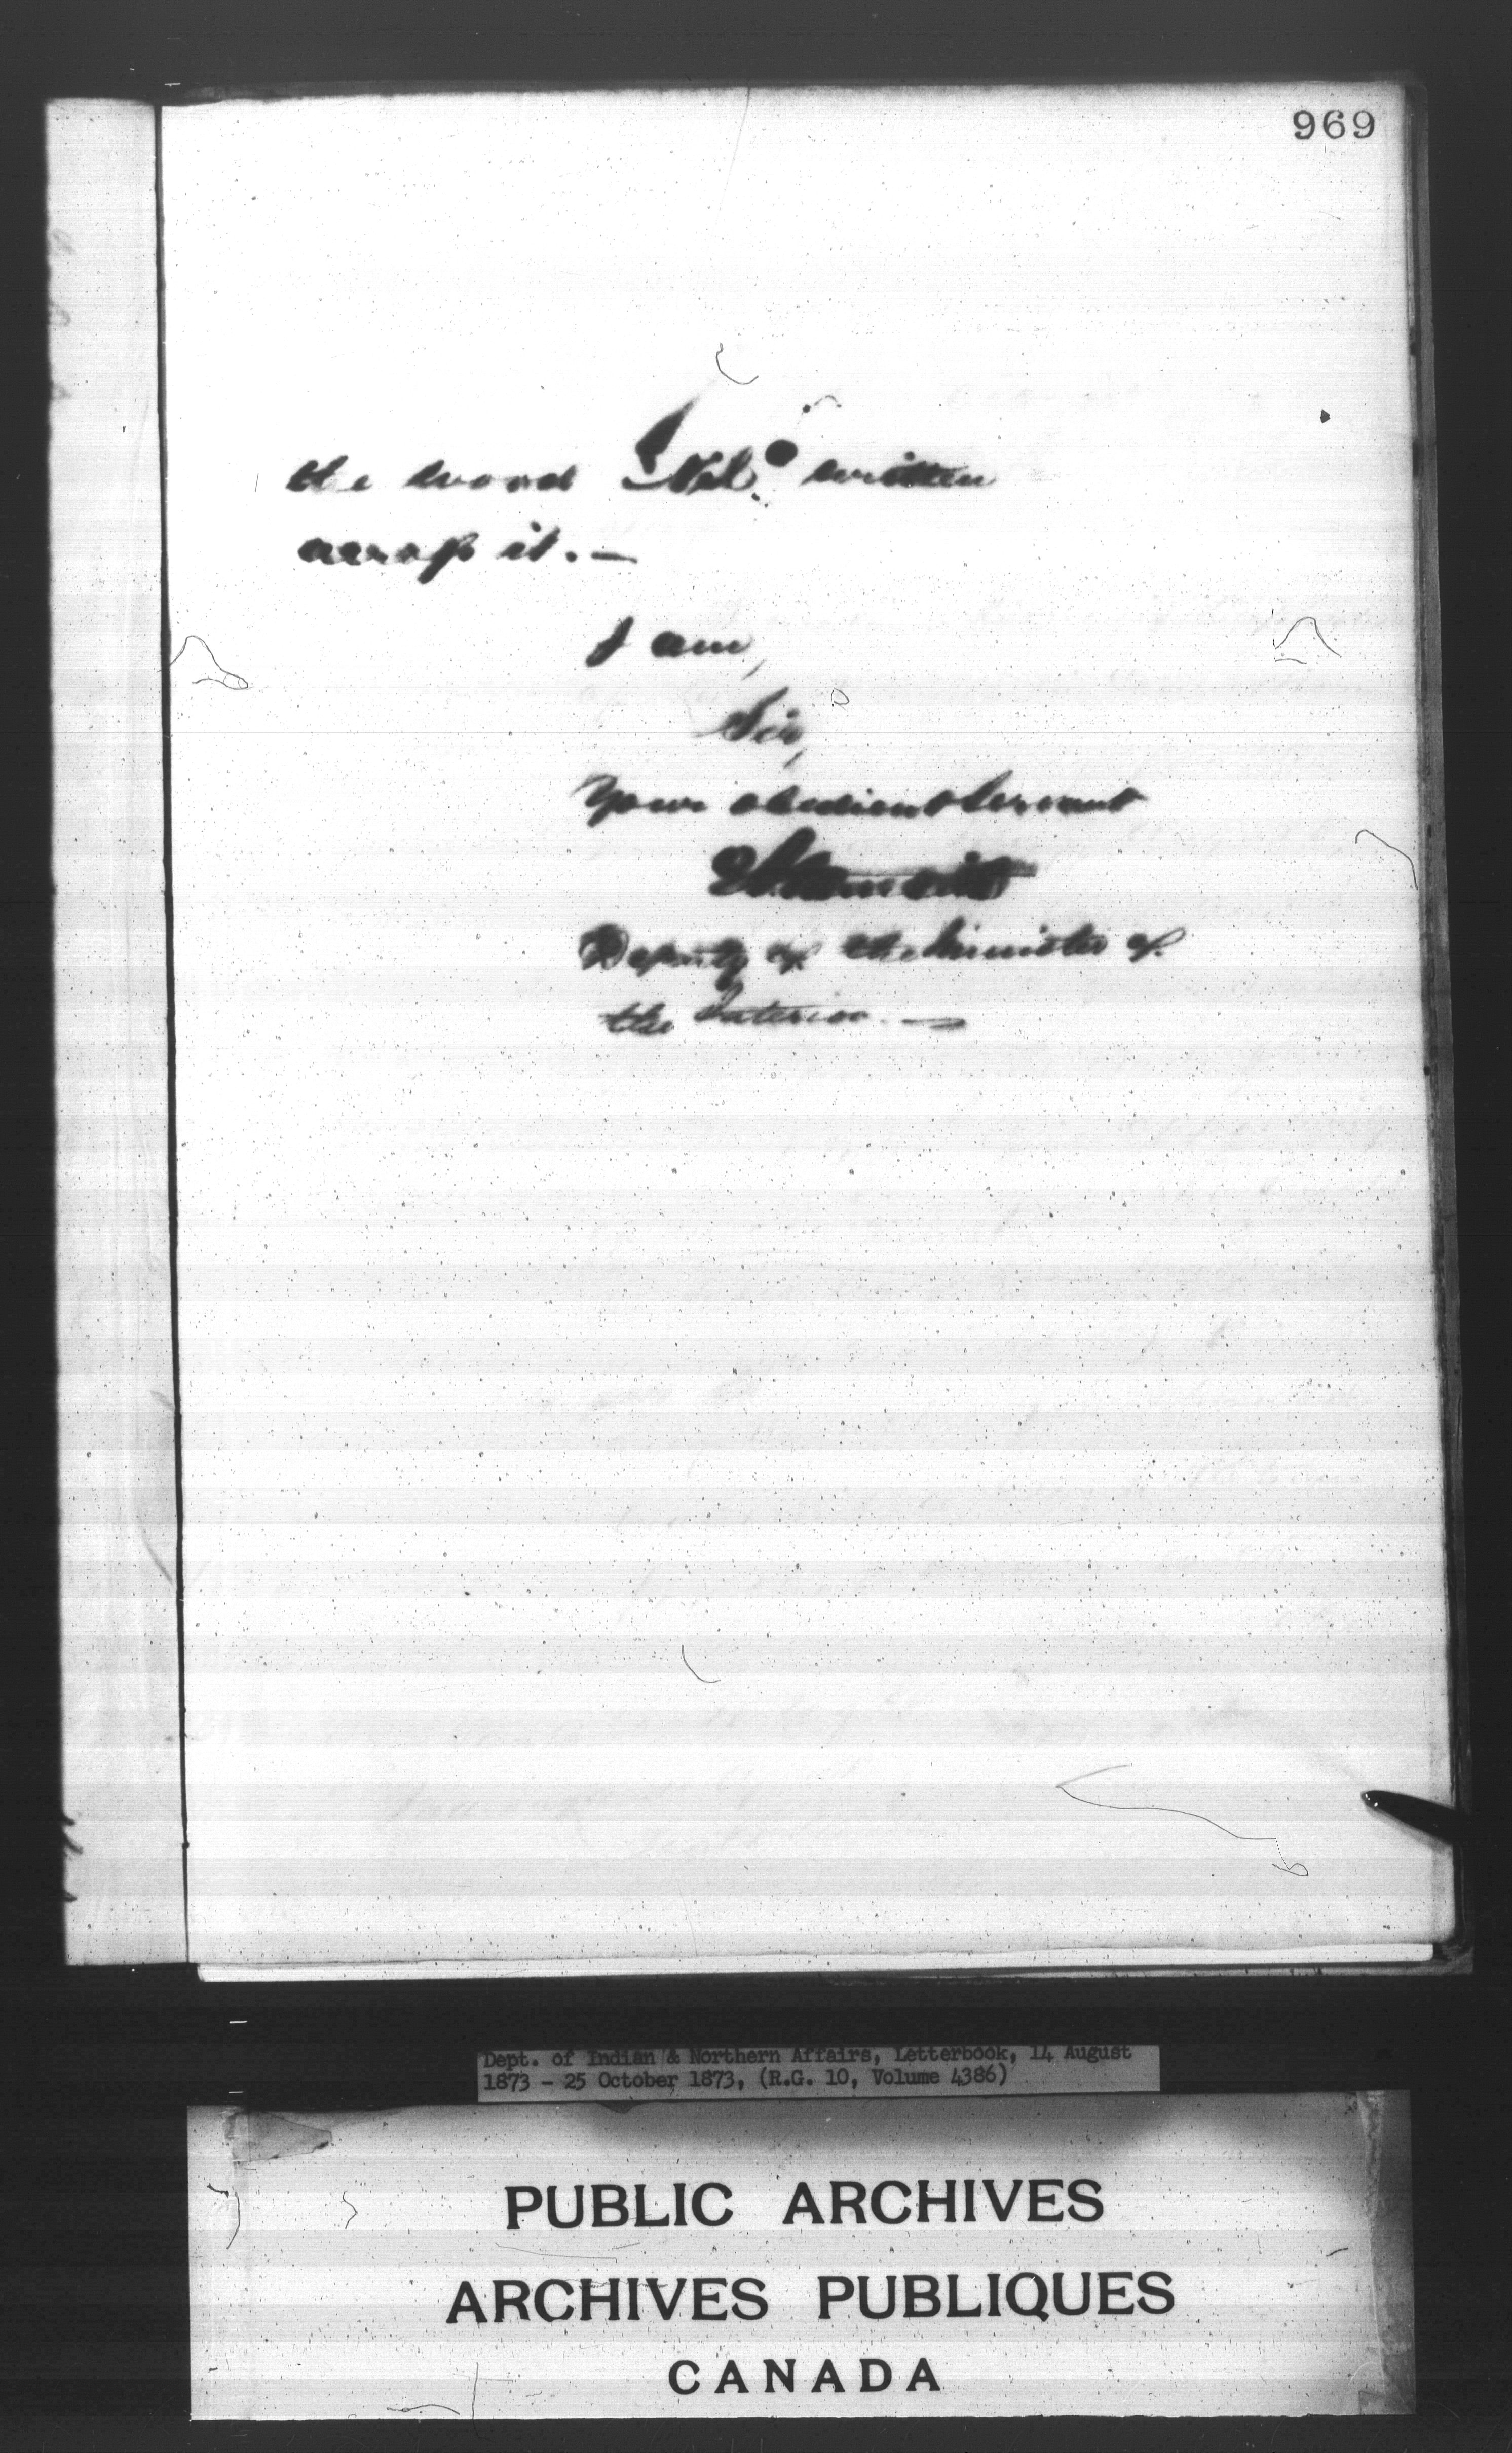 969
the word "Nil" written
across it. —
I am,
Sir,
Your obedient Servant
Deputy of the Minister of
the Interior. —
Dept. of Indian & Northern Affairs, Letterbook, 14 August
1873 - 25 October 1873, (R.G. 10, Volume 4386)
PUBLIC ARCHIVES
ARCHIVES PUBLIQUES
CANADA